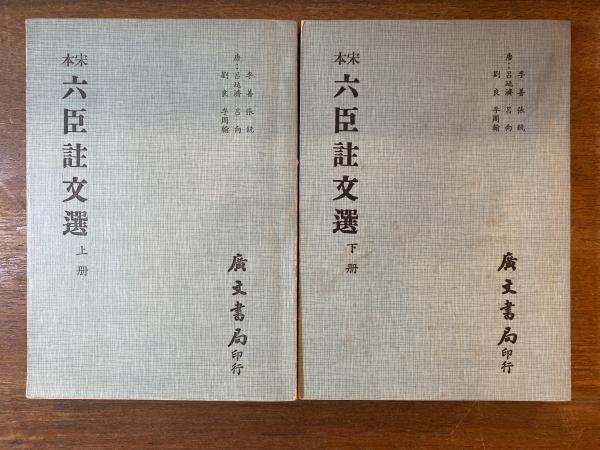 李善 張銑
唐：呂延濟 呂向
劉良 李周翰
宋本
六臣註文選 上册
廣文書局印行
李善 張銑
唐：呂延濟 呂向
劉良 李周翰
宋本
六臣註文選 下册
廣文書局印行